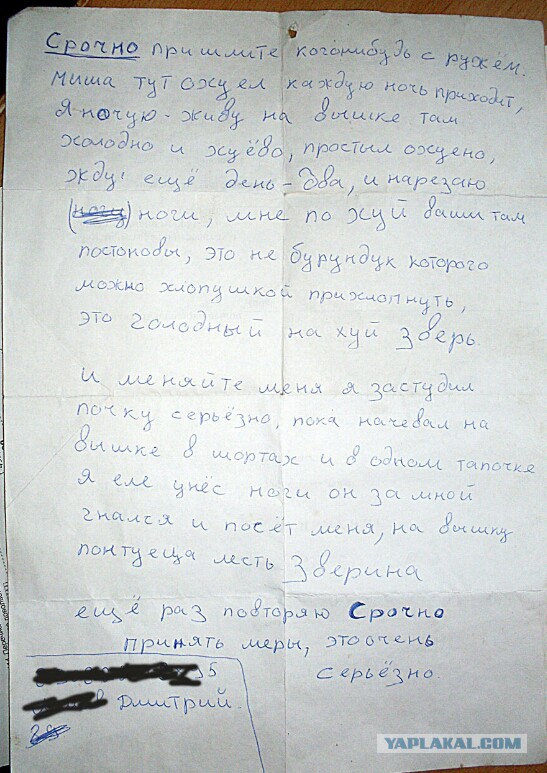 Срочно пришлите когонибудь с ружём.
миша тут охуел каждую ночь приходит,
Я ночую - живу на вышке там
холодно и хуёво, простыл охуено,
жду ещё день - два, и нарезаю
ноги, мне по хуй ваши там
постоновы, это не бурундук которого
можно хлопушкой прихлопнуть,
это голодный на хуй зверь.
и меняйте меня я застудил
почку серьёзно, пока начевал на
вышке в шортах и в одном тапочке
я еле унёс ноги он за мной
гнался и посёт меня, на вышку
понтуеща лесть Зверина
ещё раз повторяю Срочно
принять меры, это очень
серьёзно.
35
Дмитрий.
YAPLAKAL.COM